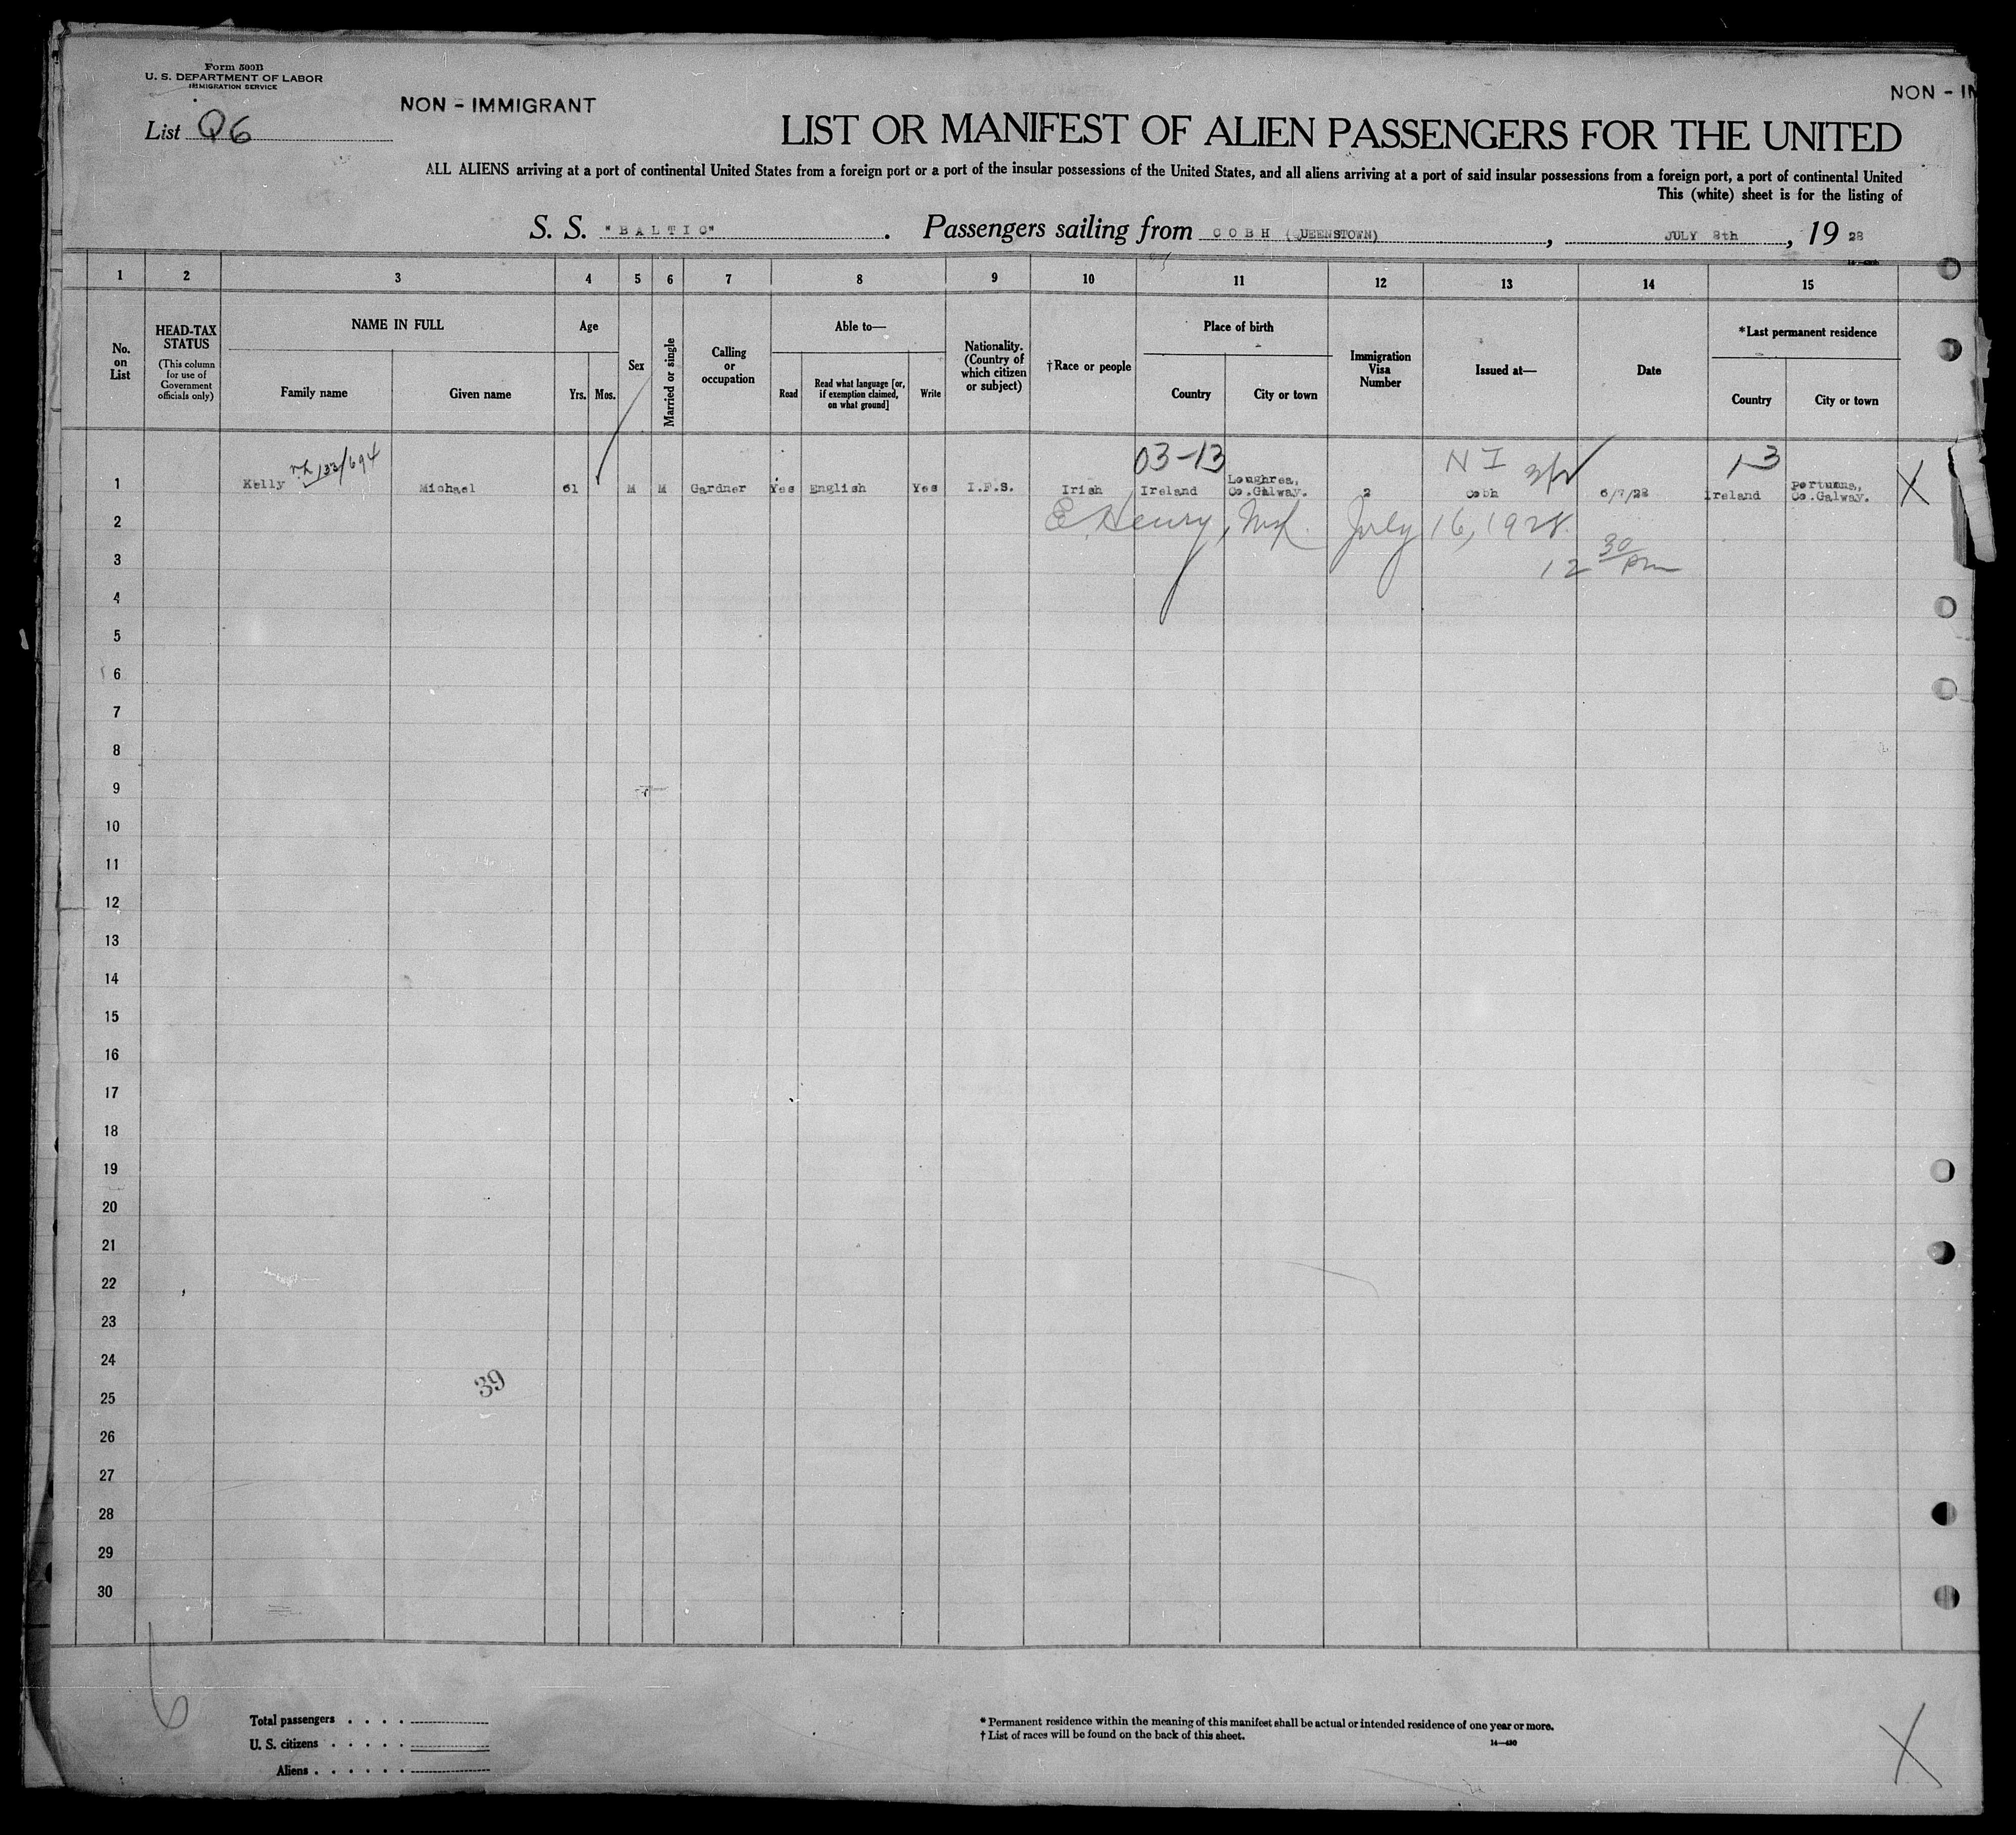 Form 500B
U. S. DEPARTMENT OF LABOR
IMMIGRATION SERVICE
NON - IMMIGRANT
NON - IM
List Q6
LIST OR MANIFEST OF ALIEN PASSENGERS FOR THE UNITED
ALL ALIENS arriving at a port of continental United States from a foreign port or a port of the insular possessions of the United States, and all aliens arriving at a port of said insular possessions from a foreign port, a port of continental United
This (white) sheet is for the listing of
S. S. "BALTIC". Passengers sailing from COBH (QUEENSTOWN), JULY 8th, 19 28
1 2 3 4 5 6 7 8 9 10 11 12 13 14 15
No. on List
HEAD-TAX STATUS
(This column for use of Government officials only)
NAME IN FULL
Family name Given name
Age
Yrs. Mos.
Sex
Married or single
Calling or occupation
Able to—
Read Read what language [or, if exemption claimed, on what ground] Write
Nationality. (Country of which citizen or subject)
†Race or people
Place of birth
Country City or town
Immigration Visa Number
Issued at—
Date
*Last permanent residence
Country City or town
133/694 03-13 N I 13
1 Kelly Michael 61 M M Gardner Yes English Yes I.F.S. Irish Ireland Loughrea, Co.Galway. 2 Cobh 6/7/28 Ireland Portumna, Co.Galway. X
2 E. Henry, July 16, 1928.
3 12 30 pm
4
5
6
7
8
9
10
11
12
13
14
15
16
17
18
19
20
21
22
23
24
39
25
26
27
28
29
30
6
Total passengers . . . .
U. S. citizens . . . . .
Aliens . . . . . .
* Permanent residence within the meaning of this manifest shall be actual or intended residence of one year or more.
† List of races will be found on the back of this sheet.
14—430
X